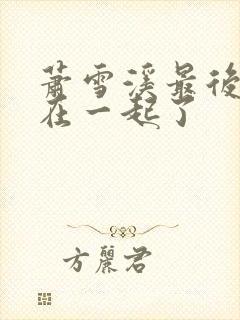 萧雪溪最後
在一起了
方麗君